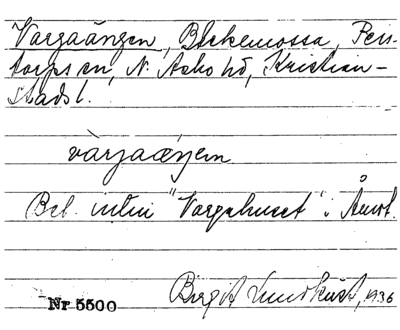 Vargaängen, Bäckemossa, Pers-
torps sn, N. Åsbo hd, Kristian-
stads l.
vàrjaæŋen
Bel. intill "Vargahuset" i
Birgit Lundkvist, 1936
Nr 5500